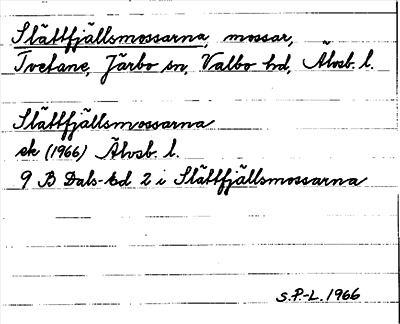 Slättfjällsmossarna, mossar,
Tvetane, Järbo sn, Valbo hd, Älvsb. l.
Slättfjällsmossarna
ek (1966) Älvsb. l.
9 B Dals-Ed 2 i Slättfjällsmossarna
S.P.-L. 1966